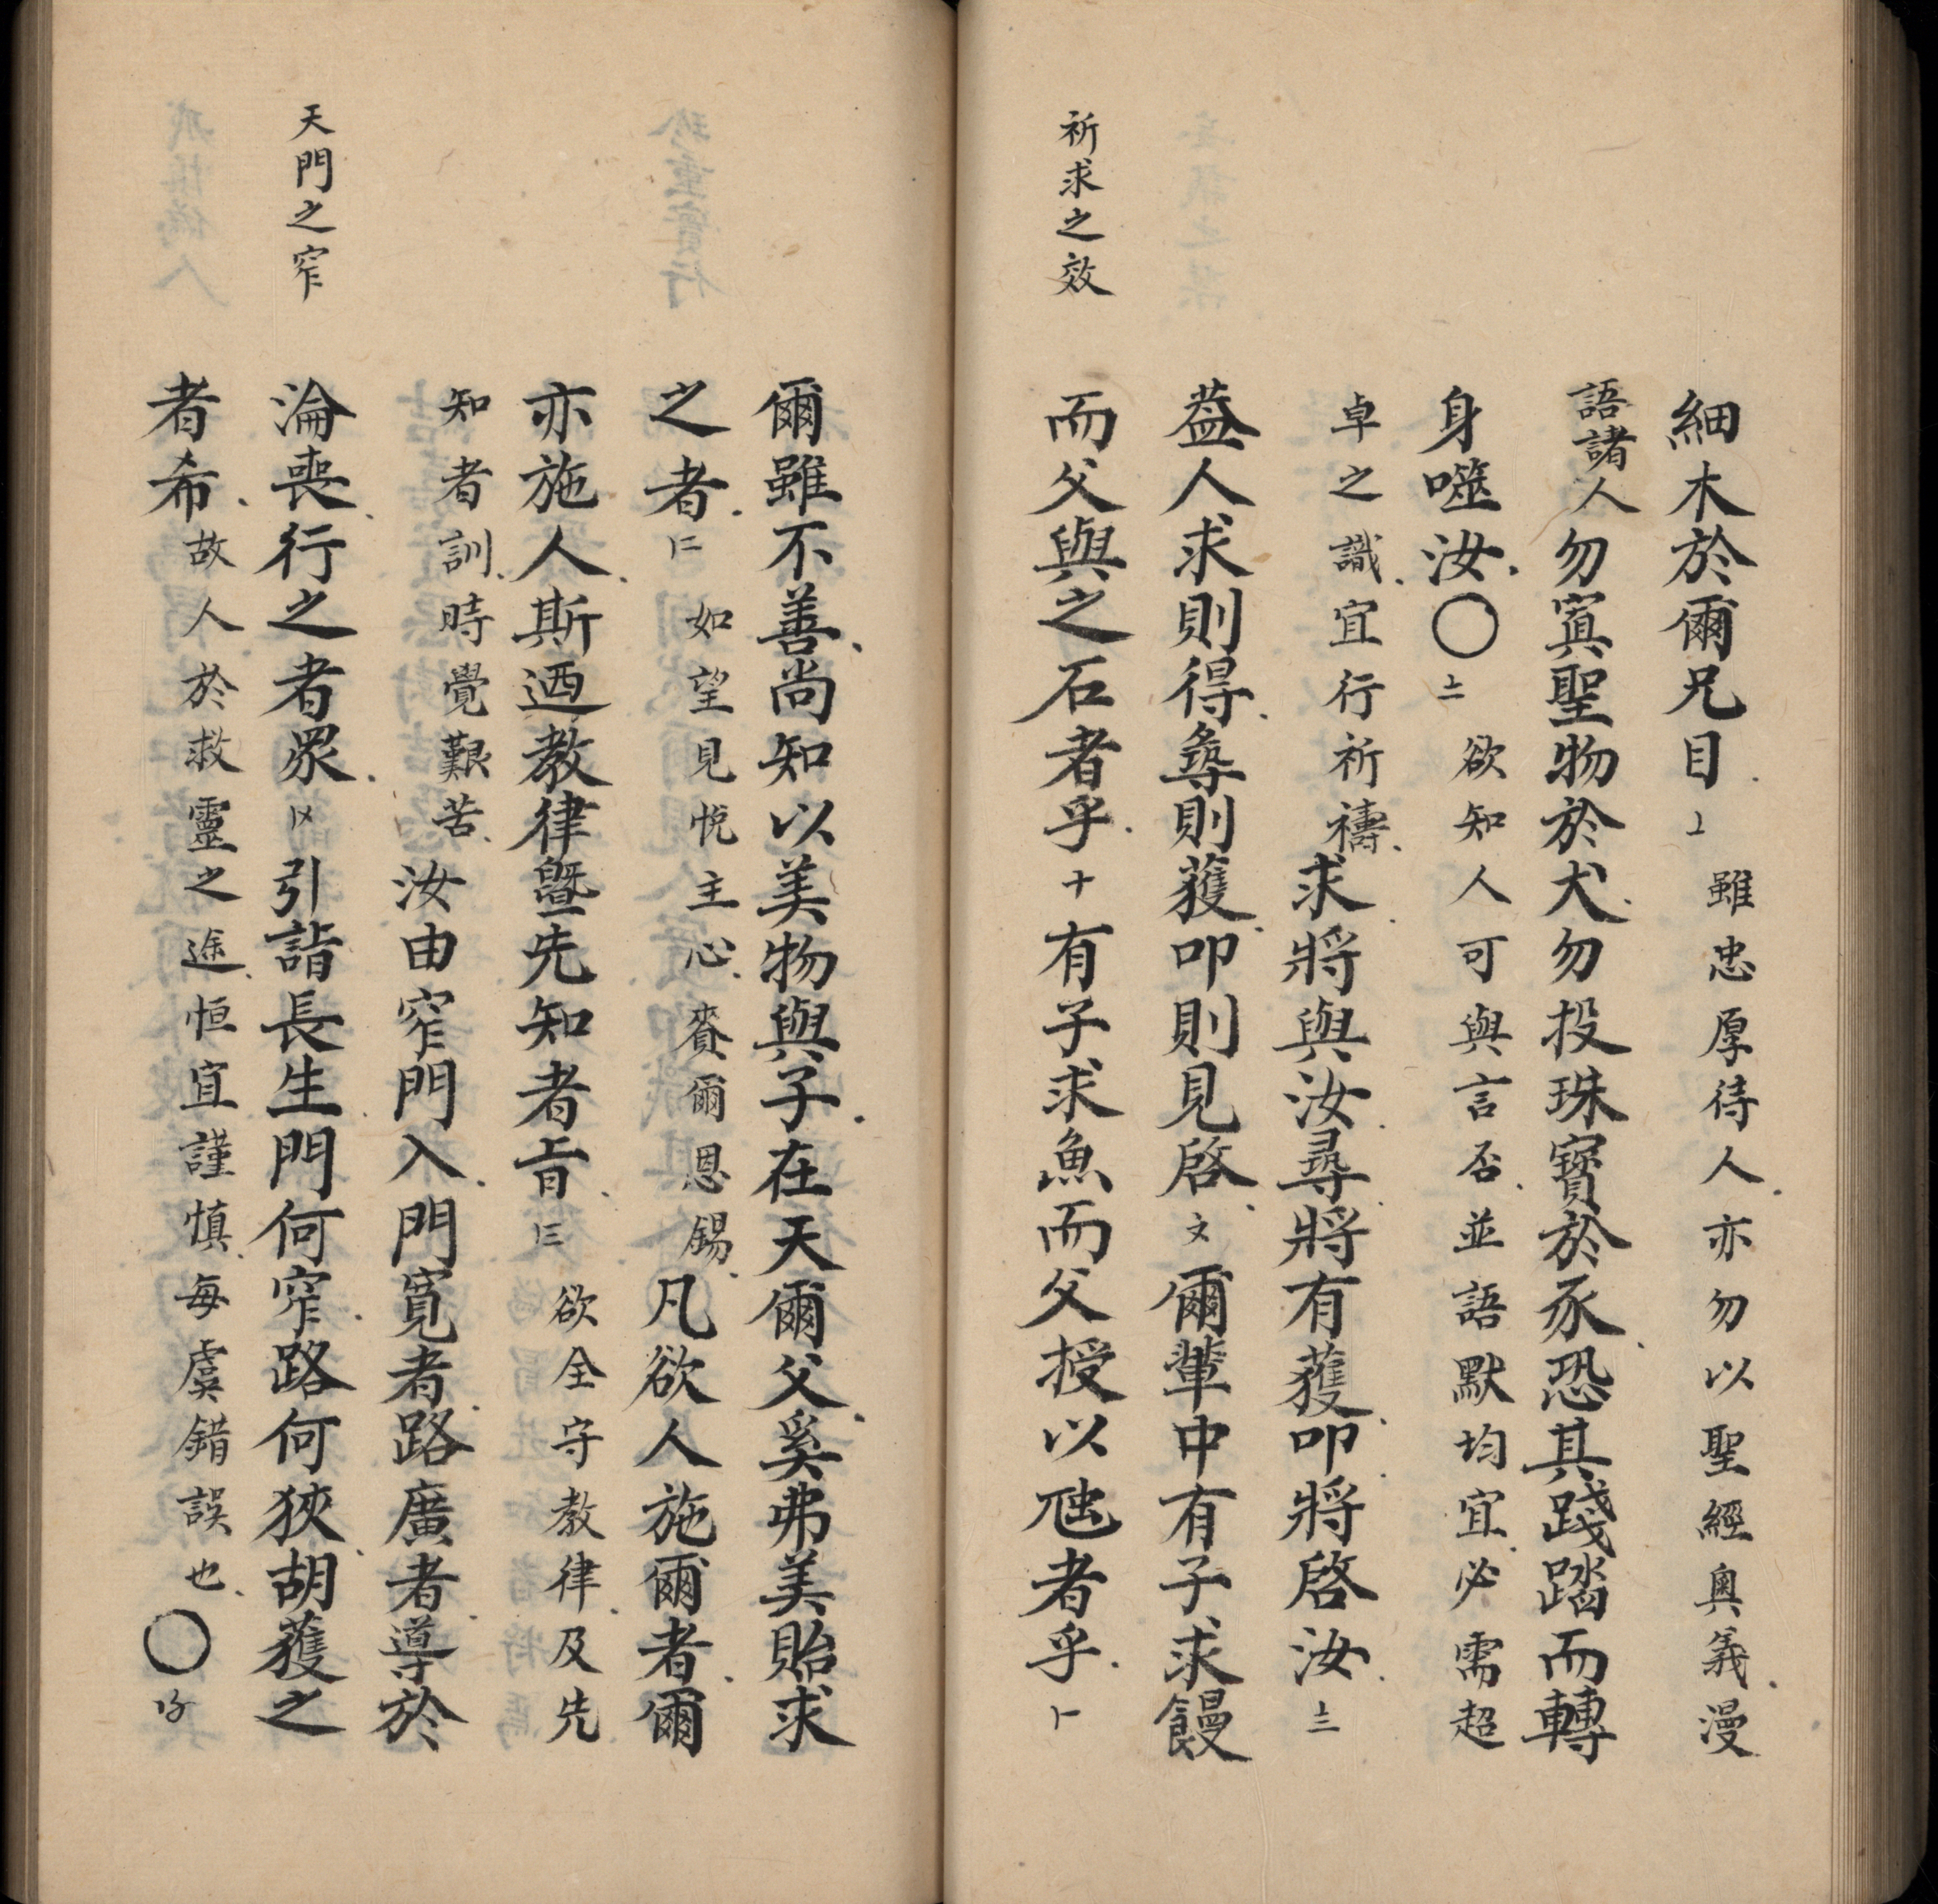 細木於爾兄目〦雖忠厚待人亦勿以聖經奧義漫
語諸人勿寘聖物於犬勿投珠寶於豕恐其踐踏而轉
身噬汝〇〧欲知人可與言否並語默均宜必需超
卓之識宜行祈禱求將與汝尋將有獲叩將啓汝〨
蓋人求則得尋則獲叩則見啓〩爾輩中有子求饅
祈求之效
而父與之石者乎十有子求魚而父授以虺者乎
爾雖不善尚知以美物與子在天爾父奚弗美貽求
之者如望見悅主心賚爾恩錫凡欲人施爾者爾
亦施人斯迺教律曁先知者旨欲全守教律及先
知者訓時覺艱苦汝由窄門入門寬者路廣者導於
天門之窄
淪喪行之者眾引詣長生門何窄路何狹胡獲之
者希故人於救靈之途恒宜謹慎每虞錯誤也〇